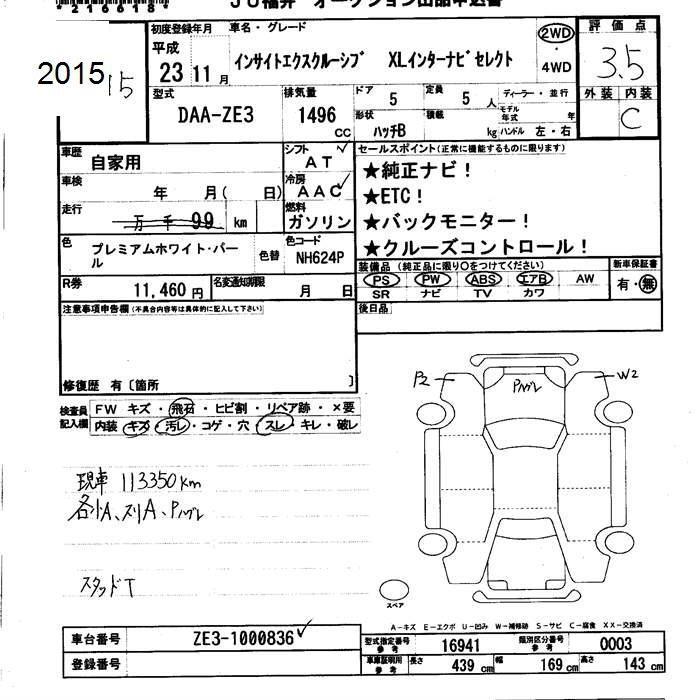 *216618*
JU福井 オークション出品申込書
2015
15
初度登録年月
平成
23 11 月
車名・グレード
インサイトエクスクルーシブ XLインターナビセレクト
2WD
・
4WD
評価点
3.5
外装 内装
C
型式
DAA-ZE3
排気量
1496
CC
ドア
5
定員
5
人
ディーラー・並行
形状
ハッチB
積載
kg
モデル
年式
年
ハンドル 左・右
車歴
自家用
シフト
AT
セールスポイント(正常に機能するものに限ります)
★純正ナビ!
★ETC!
★バックモニター!
★クルーズコントロール!
車検
年 月( 日)
冷房
AAC
走行
万 千 99 km
燃料
ガソリン
色
プレミアムホワイト・パール
色替
色コード
NH624P
装備品(純正品に限り○をつけてください)
PS PW ABS エアB AW
SR ナビ TV カワ
新車保証書
有・無
R券
11,460 円
名変通知期限
月 日
注意事項申告欄(不具合内容等は具体的に記入して下さい)
後日品
修復歴 有〔箇所 〕
検査員
記入欄
FW キズ・飛石・ヒビ割・リペア跡・×要
内装・キズ・汚レ・コゲ・穴・スレ・キレ・破レ
P2
Pハゲレ
W2
現車 113350km
各小A、スリA、Pハゲレ
スタッドT
スペア
A-キズ E-エクボ U-凹み W-補修跡 S-サビ C-腐食 XX-交換済
車台番号
ZE3-1000836
登録番号
型式指定番号
参考
16941
類別区分番号
参考
0003
車庫証明用
参考
長さ
439 cm
幅
169 cm
高さ
143 cm